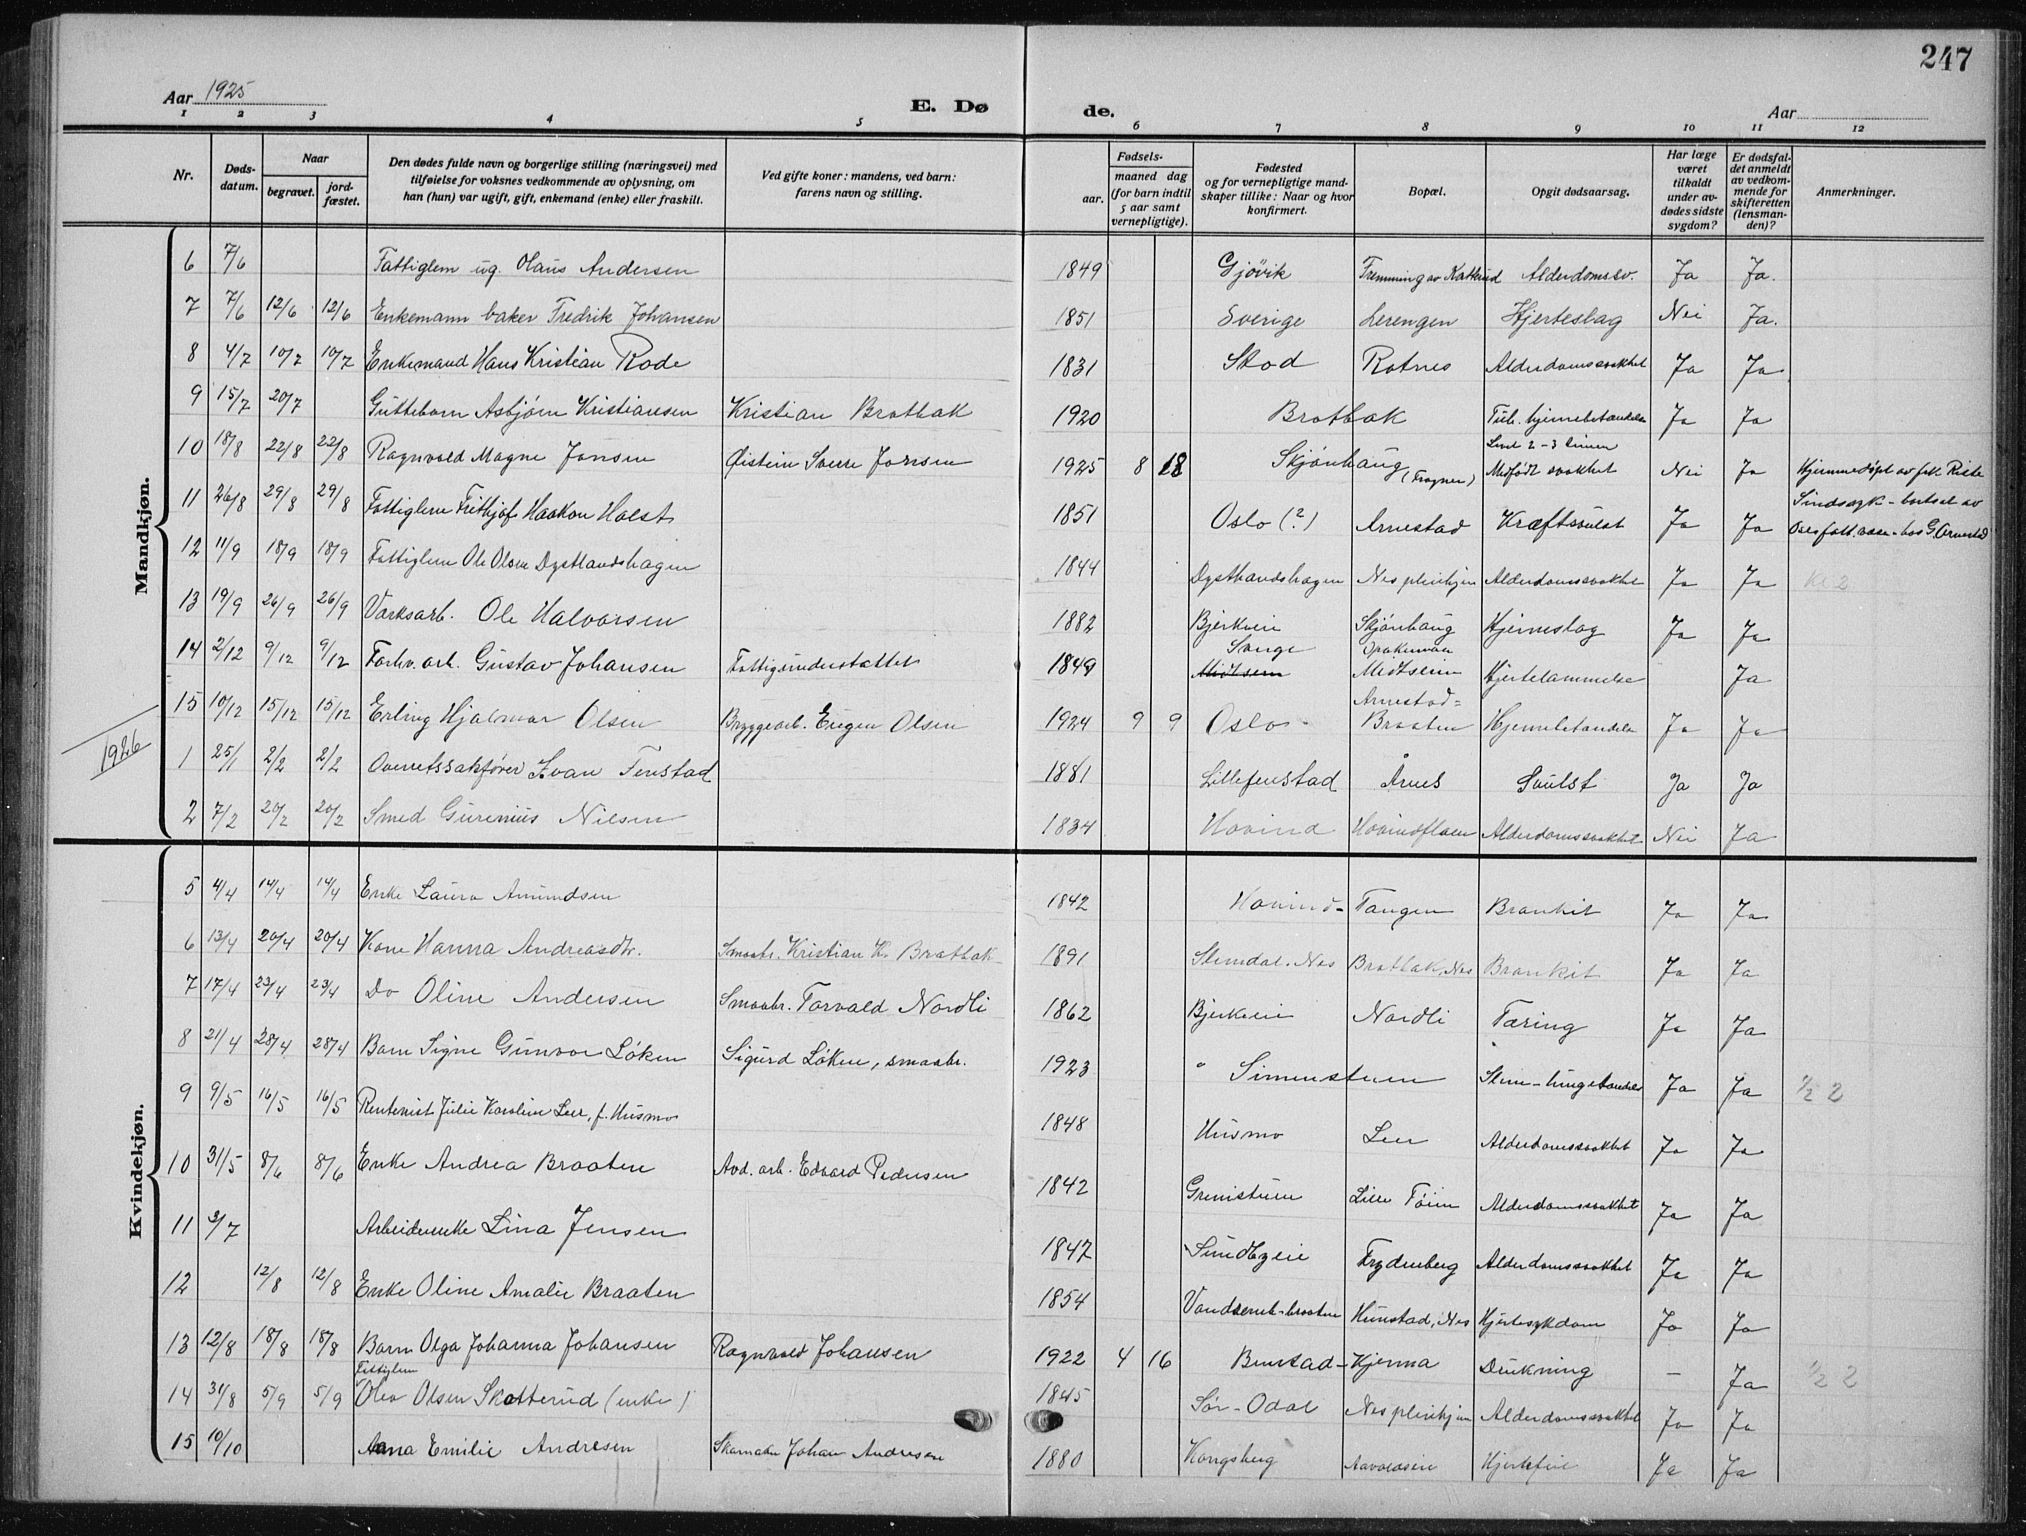 247
Aar 1925
E. Dø
de.
Aar
1 2 3 4 5 6 7 8 9 10 11 12
Nr.
Døds-
datum.
Naar
begravet.
jord-
fæstet.
Den dødes fulde navn og borgerlige stilling (næringsvei) med
tilføielse for voksnes vedkommende av oplysning, om
han (hun) var ugift, gift, enkemand (enke) eller fraskilt.
Ved gifte koner: mandens, ved barn:
farens navn og stilling.
Fødsels-
aar.
maaned dag
(for barn indtil
5 aar samt
vernepligtige).
Fødested
og for vernepligtige mand-
skaper tillike: Naar og hvor
konfirmert.
Bopæl.
Opgit dødsaarsag.
Har læge
været
tilkaldt
under av-
dødes sidste
sygdom?
Er dødsfal-
det anmeldt
av vedkom-
mende for
skifteretten
(lensman-
den)?
Anmerkninger.
Mandkjøn.
6 7/6 Fattiglem ug. Olaus Andersen 1849 Gjøvik Fremming av Kattrud Alderdomssv. Ja Ja.
7 7/6 12/6 12/6 Enkemann baker Fredrik Johansen 1851 Sverige Lerengen Hjerteslag Nei Ja.
8 4/7 10/7 10/7 Enkemand Hans Kristian Rode 1831 Skod Rotnes Alderdomssvakhet Ja Ja
9 15/7 20/7 Guttebarn Asbjørn Kristiansen Kristian Brotbak 1920 Brotbak Tub. hjernebetændelse Ja Ja
10 18/8 22/8 22/8 Ragnvald Magne Jansen Øistein Sverre Jansen 1925 8 18 Skjønhaug (Frogner) Levet 2-3 timer Medfødt svakhet Nei Ja Hjemmedøpt av frk. Riste
11 26/8 29/8 29/8 Fattiglem Frithjof Haakon Holst 1851 Oslo (?) Arnestad Kræftsvulst Ja Ja Sindssyk - bortsat av
Oslo fatt.væsen - hos G. Arnestad
12 11/9 18/9 18/9 Fattiglem Ole Olsen Dysthandshagen 1844 Dysthandshagen Nes pleiehjem Alderdomssvakhet Ja Ja
13 19/9 26/9 26/9 Værksarb. Ole Halvorsen 1882 Bjerkeeie Skjønhaug Hjerneslag Ja Ja
14 2/12 9/12 9/12 Forhv. arb. Gustav Johansen Fattigunderstøttet 1849 Sverige Midtseim Midtseim Hjertelammelse Ja
15 10/12 15/12 15/12 Erling Hjalmar Olsen Bryggearb. Eugen Olsen 1924 9 9 Oslo Arnestad-
Braaten Hjernebetændelse Ja Ja
1926
1 25/1 2/2 2/2 Overretssakfører Ivan Fenstad 1881 Lillefenstad Årnes Svulst Ja Ja
2 7/2 20/2 20/2 Smed Gurenius Nilsen 1834 Hovind Hovindfloen Alderdomssvakhet Nei Ja
Kvindekjøn.
5 4/4 14/4 14/4 Enke Laura Amundsen 1842 Hovind- Tangen Bronkit Ja Ja
6 13/4 20/4 20/4 Kone Hanna Andreasdtr. Smaabr. Kristian K. Brotbak 1891 Stendal. Nes Brotbak, Nes Bronkit Ja Ja
7 17/4 23/4 23/4 Do Oline Andersen Smaabr. Torvald Nordli 1862 Bjerkeeie Nordli Tæring Ja Ja
8 21/4 28/4 28/4 Barn Signe Gunvor Løken Sigurd Løken, smaabr. 1923 Simenstuen Ja Ja 2
9 9/5 16/5 16/5 Rentenist Julie Karoline Leer, f. Husmo 1848 Husmo Leer Alderdomssvakhet Ja Ja
10 31/5 8/6 8/6 Enke Andrea Braaten Avd. arb. Edvard Pedersen 1842 Grinistuen Lille Tøien Alderdomssvakhet Ja Ja
11 3/7 Arbeiderenke Lina Jensen 1847 Sundbyeie Frydenberg Alderdomssvakhet Ja Ja
12 12/8 12/8 Enke Oline Amalie Braaten 1854 Vandsemb-braaten Hunstad, Nes Hjertesykdom Ja Ja
13 12/8 18/8 18/8 Barn Olga Johanna Johansen Ragnvald Johansen 1922 4 16 Benstad- Hjerma Drukning - Ja 1/2 2
14 31/8 5/9 5/9 Fattiglem
Olea Olsen Skotterud (enke) 1845 Sør-Odal Nes pleiehjem Alderdomssvakhet Ja Ja
15 10/10 Anna Emilie Andresen Skomaker Johan Andresen 1880 Kongsberg Aavoldseie Hjertefeil Ja Ja